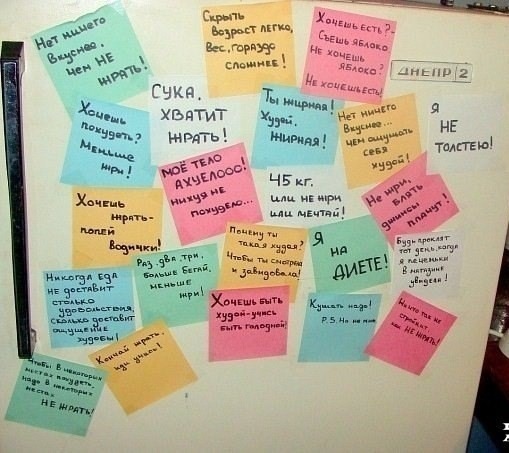 Нет ничего
вкуснее,
чем НЕ
ЖРАТЬ!
Скрыть
возраст легко,
вес, гораздо
сложнее!
Хочешь есть?-
Съешь яблоко
Не хочешь
яблоко?
Не хочешь есть!
ДНЕПР 2
Хочешь
похудеть?
Меньше
жри!
СУКА,
ХВАТИТ
ЖРАТЬ!
Ты жирная!
Худей,
ЖИРНАЯ!
Нет ничего
вкуснее...
чем ощущать
себя
худой!
Я
НЕ
ТОЛСТЕЮ!
МОЁ ТЕЛО
АХУЕЛООО!
нихуя не
похудело...
45 кг.
или не жри
или мечтай!
Не жри,
блять
джинсы
плачут!
Хочешь
жрать-
попей
водички!
Раз, два, три,
больше бегай,
меньше
жри!
Почему ты
такая худая?
Чтобы ты смотрела
и завидовала!
Я
НА
ДИЕТЕ!
Будь проклят
тот день, когда
я печеньки
в магазине
увидела!
Никогда ЕДА
не доставит
столько
удовольствия,
сколько доставит
ощущение
худобы!
Хочешь быть
худой-учись
быть голодной!
Кушать надо!
P.S. Но не мне
Ничто так не
стройнит,
как НЕ ЖРАТЬ!
Кончай жрать,
иди учись!
Чтобы в некоторых
местах похудеть,
надо в некоторых
местах
НЕ ЖРАТЬ!